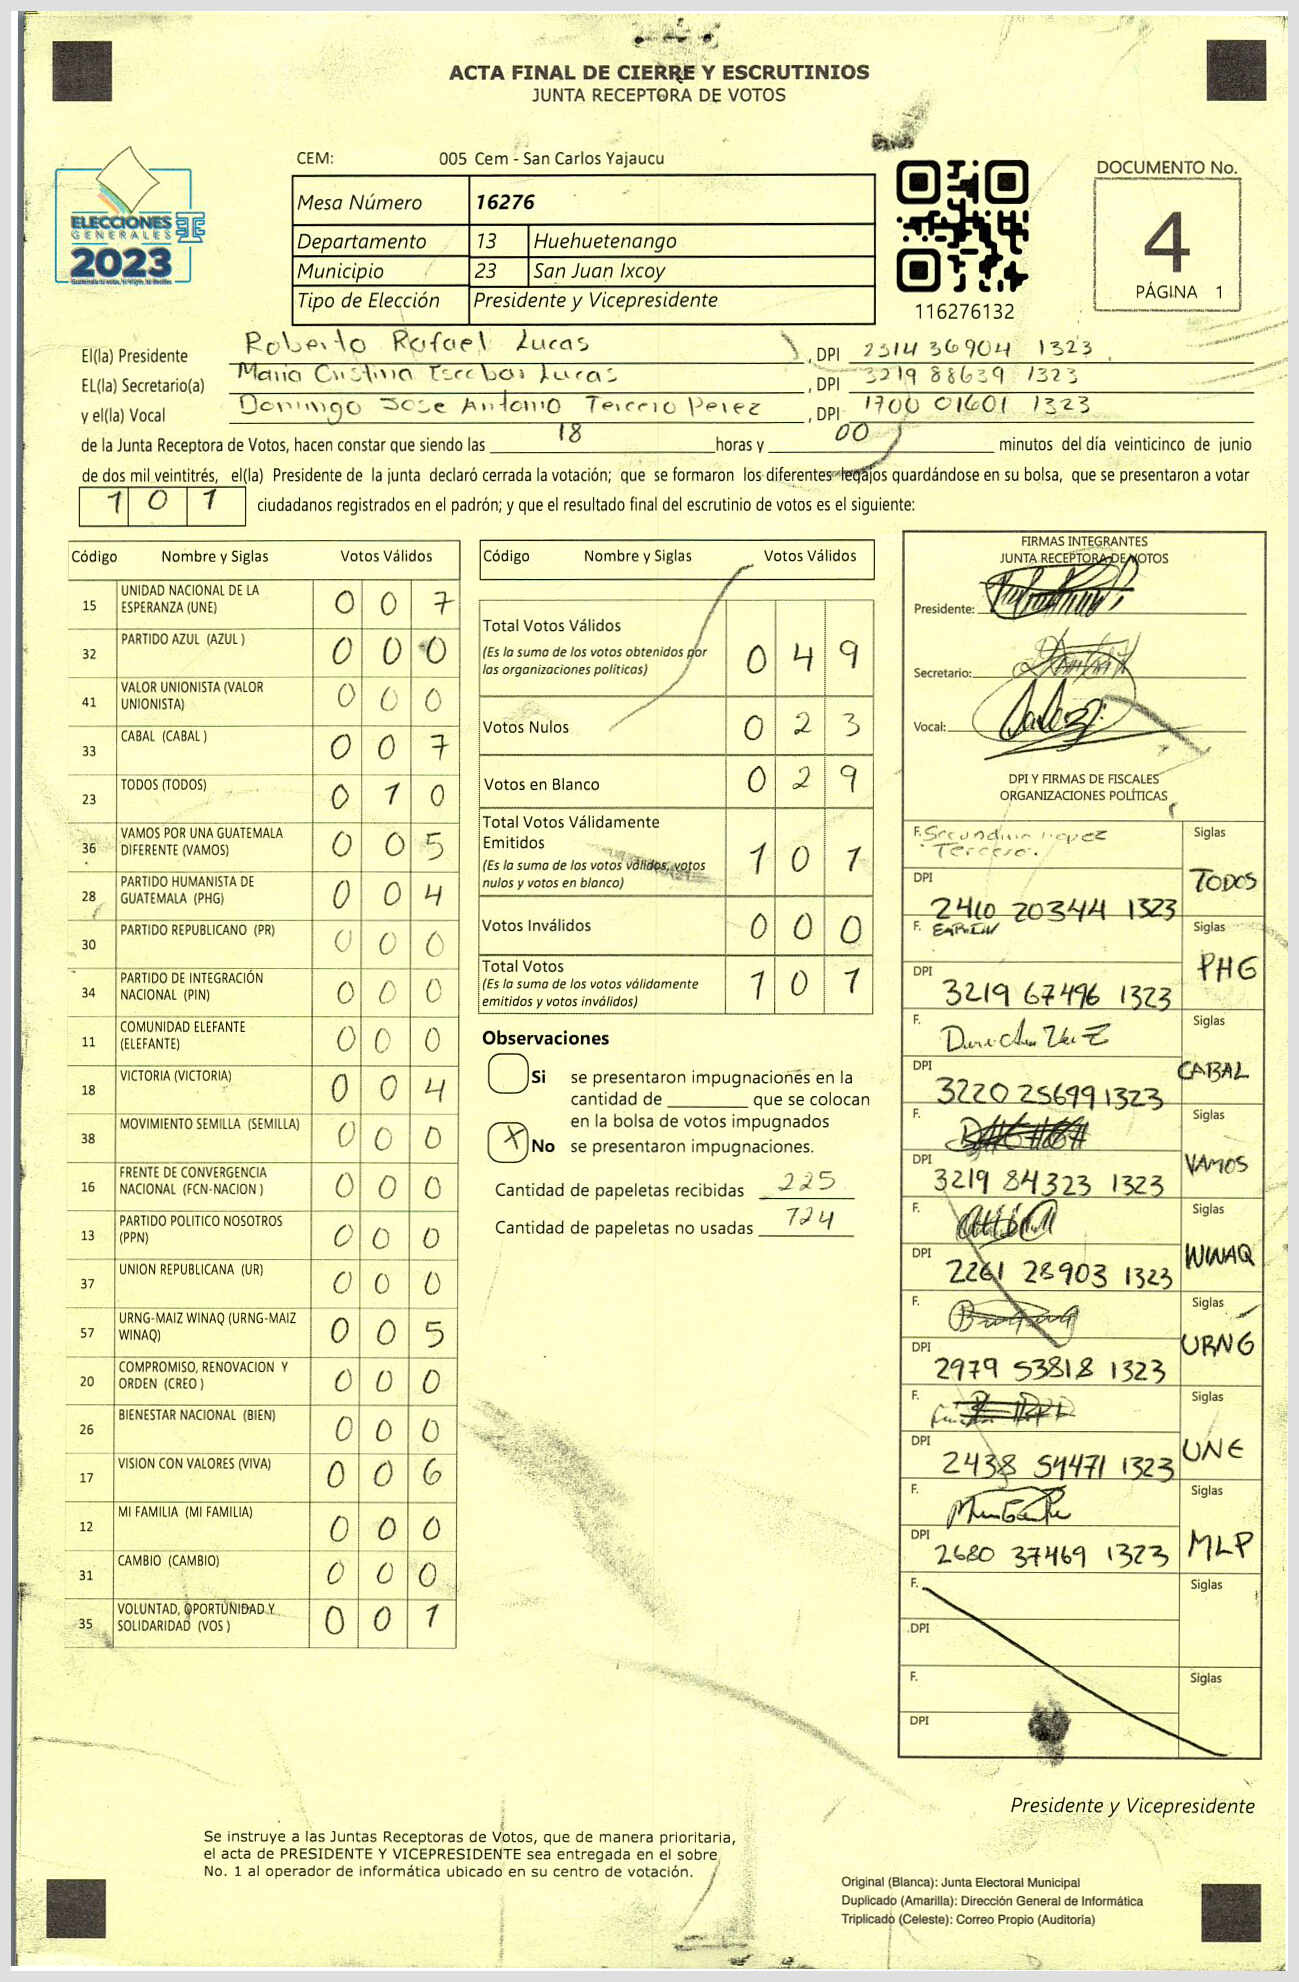 ACTA FINAL DE CIERRE Y ESCRUTINIOS
JUNTA RECEPTORA DE VOTOS
CEM: 005 Cem - San Carlos Yajaucu
DOCUMENTO No.
4
PÁGINA 1
ELECCIONES
GENERALES
2023
Mesa Número 16276
Departamento 13 Huehuetenango
Municipio 23 San Juan Ixcoy
Tipo de Elección Presidente y Vicepresidente
116276132
El(la) Presidente Roberto Rafael Lucas, DPI 2314 36904 1323
EL(la) Secretario(a) Maria Cristina Escobar Lucas, DPI 3219 88639 1323
y el(la) Vocal Domingo Jose Antonio Tercero Perez, DPI 1700 01601 1323
de la Junta Receptora de Votos, hacen constar que siendo las 18 horas y 00 minutos del día veinticinco de junio
de dos mil veintitrés, el(la) Presidente de la junta declaró cerrada la votación; que se formaron los diferentes legajos guardándose en su bolsa, que se presentaron a votar
101 ciudadanos registrados en el padrón; y que el resultado final del escrutinio de votos es el siguiente:
Código Nombre y Siglas Votos Válidos
15 UNIDAD NACIONAL DE LA
ESPERANZA (UNE) 0 0 7
32 PARTIDO AZUL (AZUL ) 0 0 0
41 VALOR UNIONISTA (VALOR
UNIONISTA) 0 0 0
33 CABAL (CABAL ) 0 0 7
23 TODOS (TODOS) 0 1 0
36 VAMOS POR UNA GUATEMALA
DIFERENTE (VAMOS) 0 0 5
28 PARTIDO HUMANISTA DE
GUATEMALA (PHG) 0 0 4
30 PARTIDO REPUBLICANO (PR) 0 0 0
34 PARTIDO DE INTEGRACIÓN
NACIONAL (PIN) 0 0 0
11 COMUNIDAD ELEFANTE
(ELEFANTE) 0 0 0
18 VICTORIA (VICTORIA) 0 0 4
38 MOVIMIENTO SEMILLA (SEMILLA) 0 0 0
16 FRENTE DE CONVERGENCIA
NACIONAL (FCN-NACION ) 0 0 0
13 PARTIDO POLITICO NOSOTROS
(PPN) 0 0 0
37 UNION REPUBLICANA (UR) 0 0 0
57 URNG-MAIZ WINAQ (URNG-MAIZ
WINAQ) 0 0 5
20 COMPROMISO, RENOVACION Y
ORDEN (CREO ) 0 0 0
26 BIENESTAR NACIONAL (BIEN) 0 0 0
17 VISION CON VALORES (VIVA) 0 0 6
12 MI FAMILIA (MI FAMILIA) 0 0 0
31 CAMBIO (CAMBIO) 0 0 0
35 VOLUNTAD, OPORTUNIDAD Y
SOLIDARIDAD (VOS ) 0 0 1
Código Nombre y Siglas Votos Válidos
Total Votos Válidos 0 4 9
(Es la suma de los votos obtenidos por
las organizaciones políticas)
Votos Nulos 0 2 3
Votos en Blanco 0 2 9
Total Votos Válidamente
Emitidos 1 0 1
(Es la suma de los votos válidos, votos
nulos y votos en blanco)
Votos Inválidos 0 0 0
Total Votos 1 0 1
(Es la suma de los votos válidamente
emitidos y votos inválidos)
Observaciones
Si se presentaron impugnaciones en la
cantidad de que se colocan
en la bolsa de votos impugnados
X No se presentaron impugnaciones.
Cantidad de papeletas recibidas 225
Cantidad de papeletas no usadas 724
FIRMAS INTEGRANTES
JUNTA RECEPTORA DE VOTOS
Presidente:
Secretario:
Vocal:
DPI Y FIRMAS DE FISCALES
ORGANIZACIONES POLÍTICAS
F. Secundino Lopez Siglas
Tercero.
DPI 2410 20344 1323 TODOS
F. Siglas
DPI 3219 67496 1323 PHG
F. Siglas
DPI 3220 25699 1323 CABAL
F. Siglas
DPI 3219 84323 1323 VAMOS
F. Siglas
DPI 2261 28903 1323 WINAQ
F. Siglas
DPI 2979 53818 1323 URNG
F. Siglas
DPI 2438 54471 1323 UNE
F. Siglas
DPI 2680 37469 1323 MLP
F. Siglas
DPI
F. Siglas
DPI
Presidente y Vicepresidente
Se instruye a las Juntas Receptoras de Votos, que de manera prioritaria,
el acta de PRESIDENTE Y VICEPRESIDENTE sea entregada en el sobre
No. 1 al operador de informática ubicado en su centro de votación.
Original (Blanca): Junta Electoral Municipal
Duplicado (Amarilla): Dirección General de Informática
Triplicado (Celeste): Correo Propio (Auditoria)